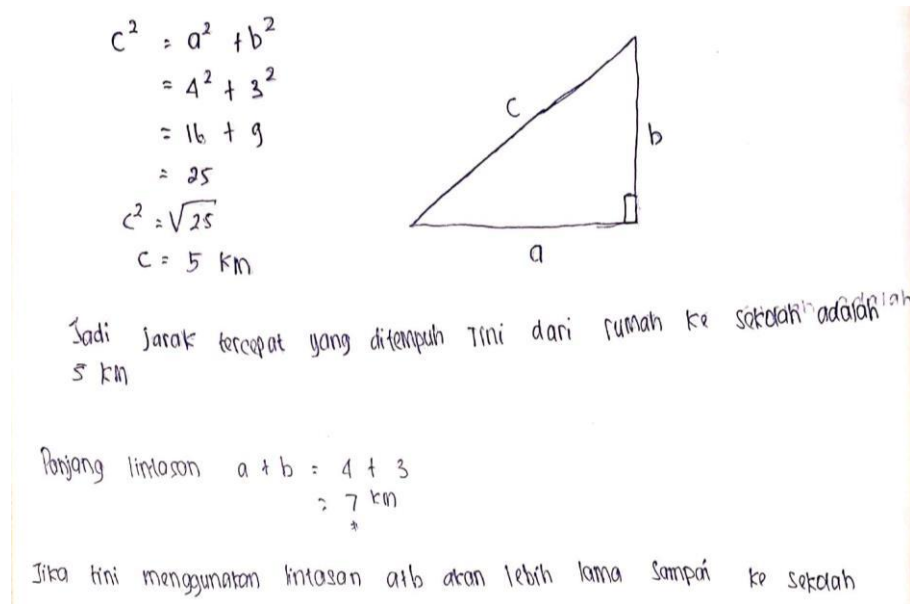 c² = a² + b²
= 4² + 3²
= 16 + 9
= 25
c² = √25
c = 5 km
c
b
a
Jadi jarak tercepat yang ditempuh Tini dari rumah ke sekolah adalah
5 km
Panjang lintasan a + b = 4 + 3
= 7 km
Jika tini menggunakan lintasan a+b akan lebih lama sampai ke sekolah